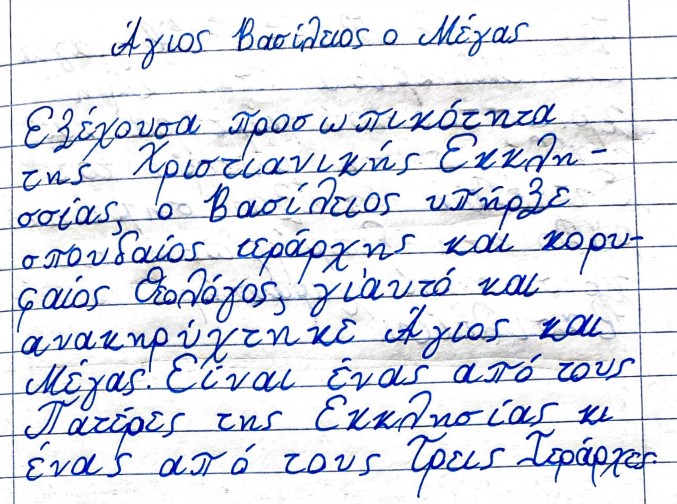 Άγιος Βασίλειος ο Μέγας
Εξέχουσα προσωπικότητα
της Χριστιανικής Εκκλη-
σσίας, ο Βασίλειος υπήρξε
σπουδαίος ιεράρχης και κορυ-
φαίος Θεολόγος, γι'αυτό και
ανακηρύχτηκε Άγιος και
Μέγας. Είναι ένας από τους
Πατέρες της Εκκλησίας κι
ένας από τους Τρεις Ιεράρχες.